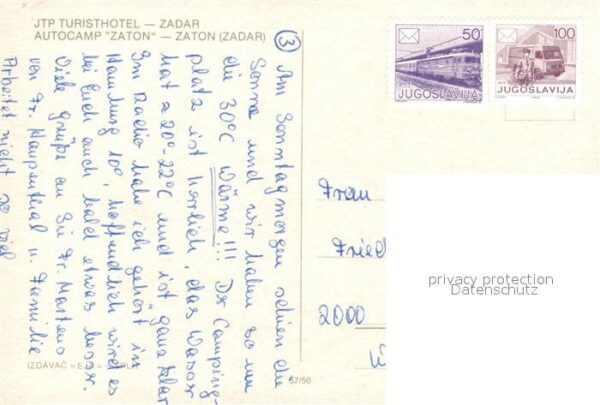 JTP TURISTHOTEL — ZADAR
AUTOCAMP "ZATON" — ZATON (ZADAR)
③ Am Sonntagmorgen schien die
Sonne und wir haben so um
die 30°C Wärme!!! Der Camping-
platz ist herrlich, das Wasser
hat 20°-22°C und ist ganz klar
Im Radio habe ich gehört in
Hamburg 10°, hoffendlich wird es
bei Euch auch bald etwas besser.
Viele Grüße an Sie Fr. Martens
von Fr. Haupenthal u. Familie
Arbeitet nicht so viel
IZDAVAČ
57/50
50
JUGOSLAVIJA
100
JUGOSLAVIJA
Frau
Fried
2000
privacy protection
Datenschutz